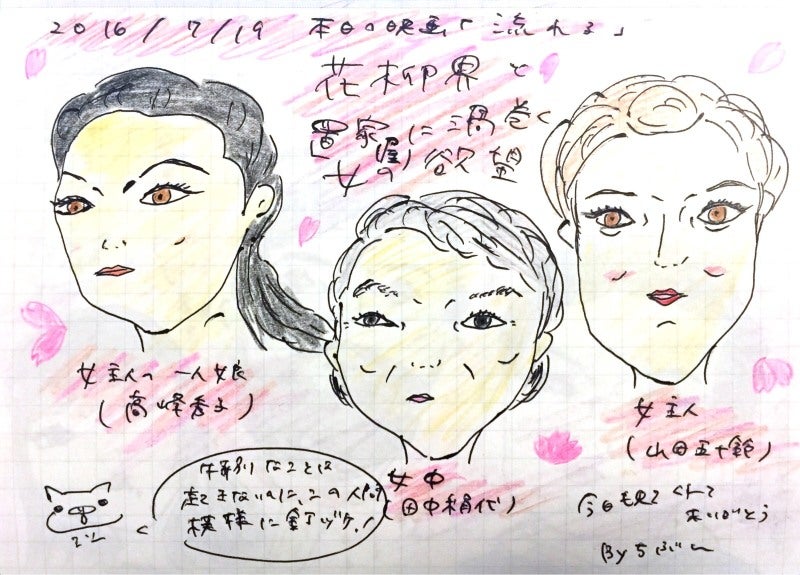 2016/7/19 本日の映画「流れる」
花柳界と
置家(屋)に渦巻く
女の欲望
女主人の一人娘
(高峰秀子)
女中
(田中絹代)
女主人
(山田五十鈴)
特別なことは
起きないのに、この人間
模様に釘ヅケ!
今日も見てくれて
ありがとう
By ちぶ